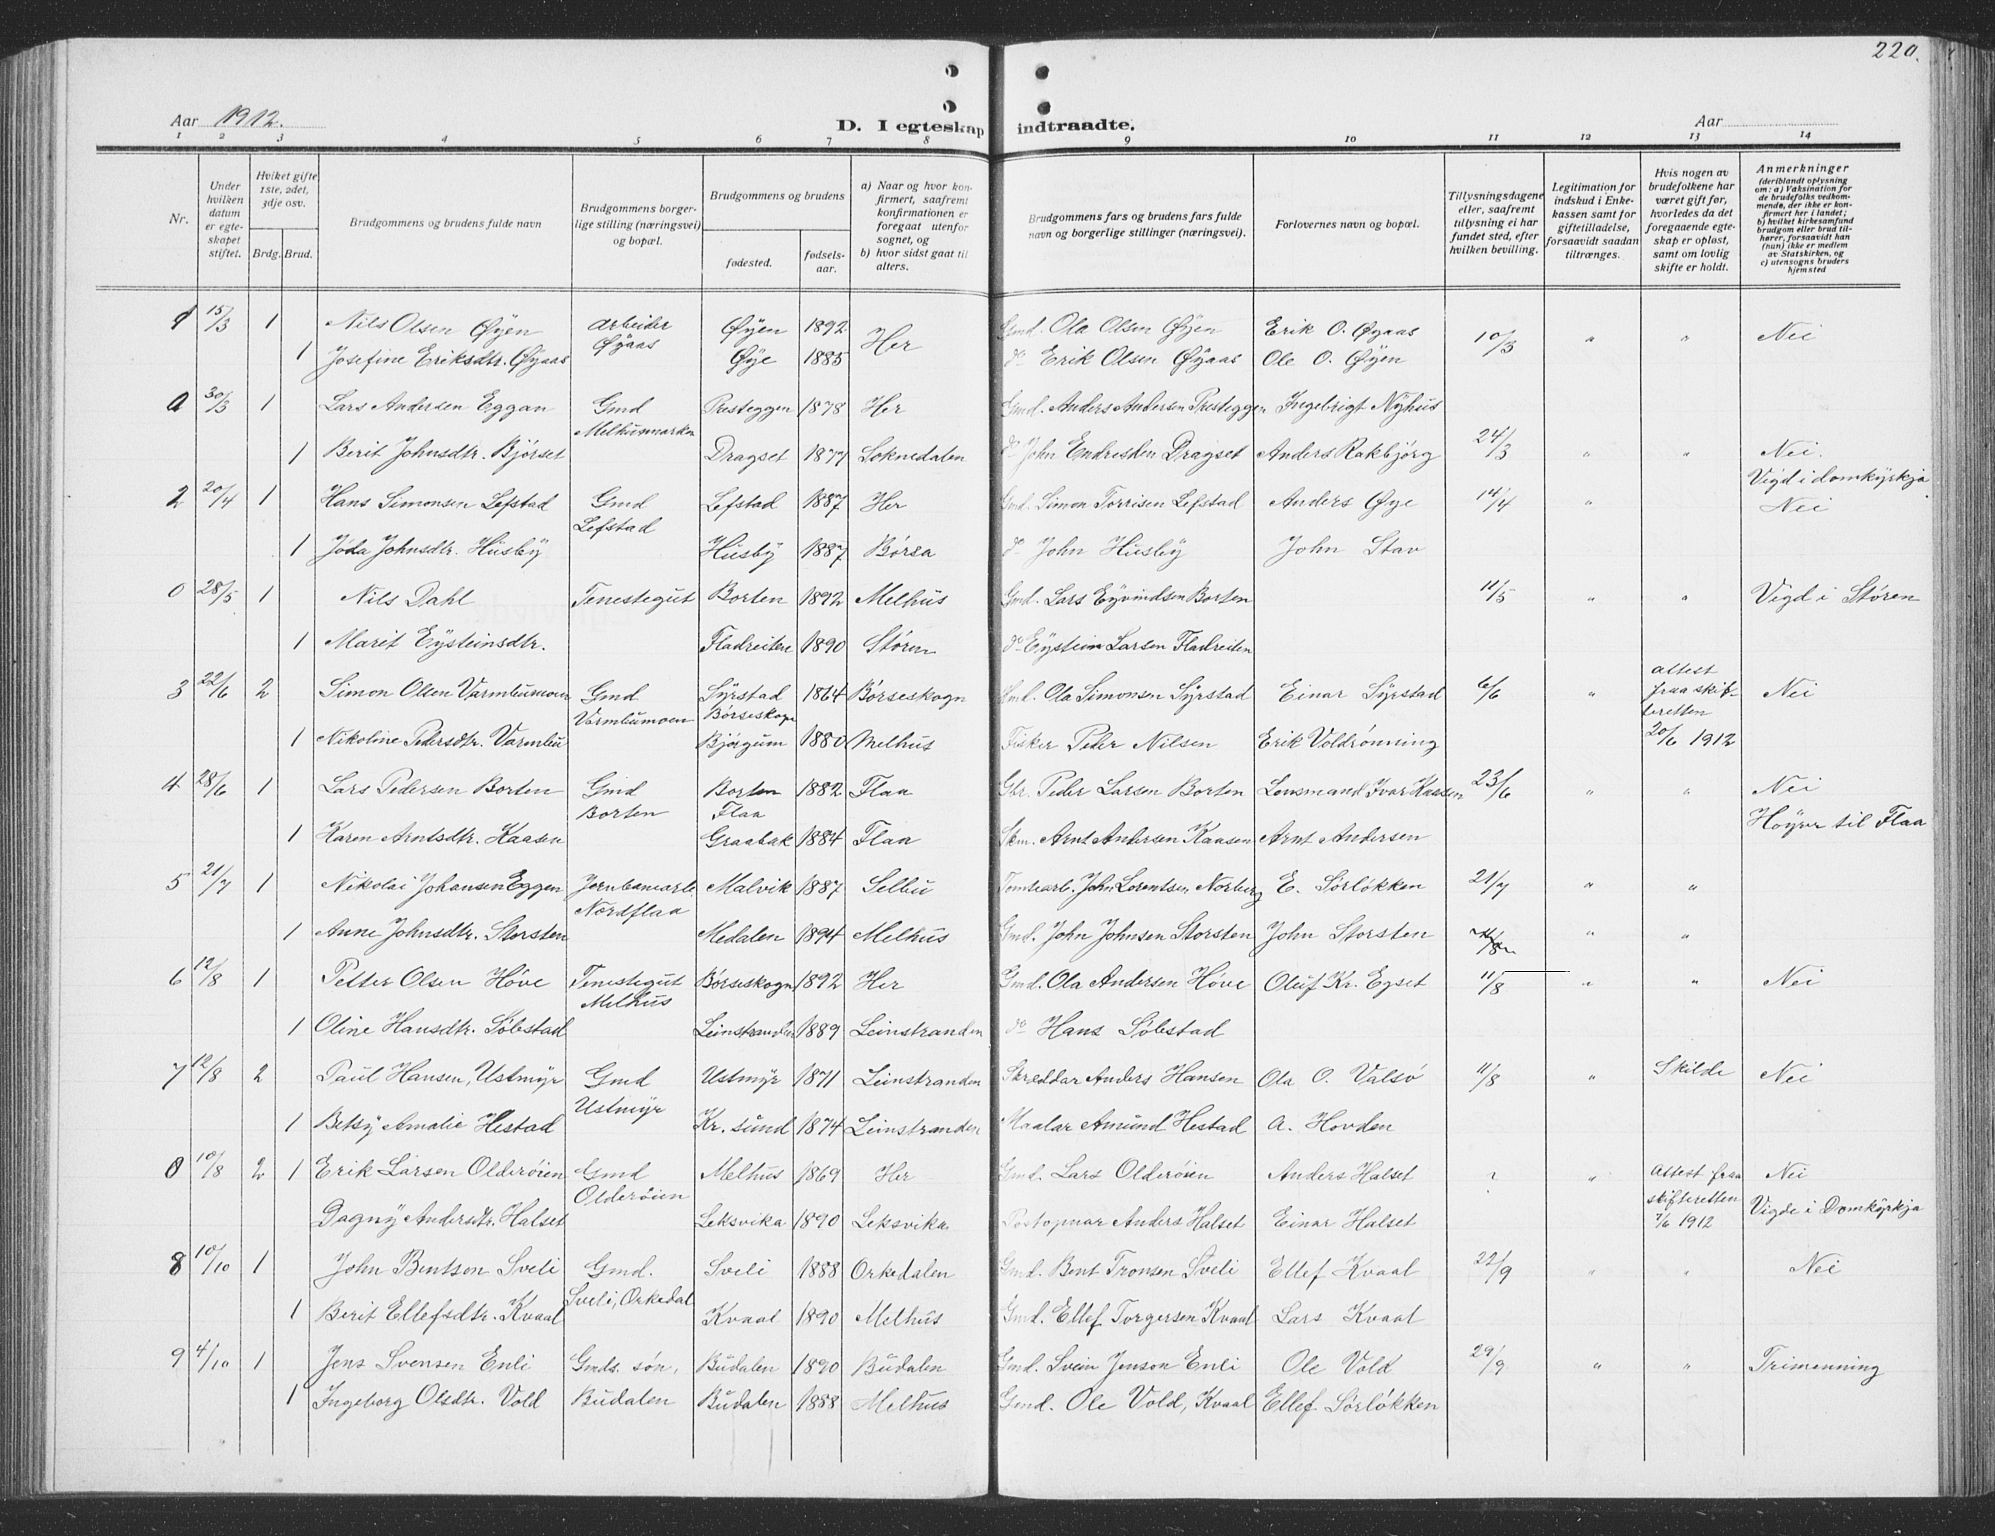 220.
Aar 1912.
D. I egteskap indtraadte.
Aar
1 2 3 4 5 6 7 8 9 10 11 12 13 14
Nr.
Under hvilken datum er egteskapet stiftet.
Hvilket gifte 1ste, 2det, 3dje osv.
Brdg. Brud.
Brudgommens og brudens fulde navn
Brudgommens borgerlige stilling (næringsvei) og bopæl.
Brudgommens og brudens
fødested.
fødselsaar.
a) Naar og hvor konfirmert, saafremt konfirmationen er foregaat utenfor sognet, og
b) hvor sidst gaat til alters.
Brudgommens fars og brudens fars fulde navn og borgerlige stillinger (næringsvei).
Forlovernes navn og bopæl.
Tillysningsdagene eller, saafremt tillysning ei har fundet sted, efter hvilken bevilling.
Legitimation for indskud i Enkekassen samt for giftetilladelse, forsaavidt saadan tiltrænges.
Hvis nogen av brudefolkene har været gift før, hvorledes da det foregaaende egteskap er opløst, samt om lovlig skifte er holdt.
Anmerkninger
(deriblandt oplysning om: a) Vaksination for de brudefolks vedkommende, der ikke er konfirmert her i landet; b) hvilket kirkesamfund brudgom eller brud tilhører, forsaavidt han (hun) ikke er medlem av Statskirken, og c) utensogns bruders hjemsted
1 15/3 1 Nils Olsen Øyen arbeider Øyaas Øyen 1892 Her Gmd. Ola Olsen Øyen Erik O. Øyaas 10/3 " " Nei
1 Josefine Eriksdtr. Øyaas Øye 1885 do Erik Olsen Øyaas Ole O. Øyen
0 30/3 1 Lars Andersen Eggan Gmd Presteggen 1878 Her Gmd. Anders Andersen Presteggen Ingebrigt Nyhus
Melhusmarken
1 Berit Johnsdtr. Bjørset Dragset 1877 Soknedalen do John Endresden Dragset Anders Rakbjørg 24/3 " " Nei.
Vigd i domkyrkja
2 20/4 1 Hans Simonsen Lefstad Gmd Lefstad 1887 Her Gmd. Simon Torrisen Lefstad Anders Øye 14/4 " Nei
Lefstad
1 Joda Johnsdtr. Husby Husby 1887 Børsa do John Husby John Stav
0 28/5 1 Nils Dahl Tenestegut Borten 1892 Melhus Gmd. Lars Eyvindsen Borten 11/5 " " Vigd i Støren
1 Marit Eysteinsdtr. Fladreiten 1890 Støren do Eystein Larsen Fladreiten
3 22/6 2 Simon Olsen Varmbumoen Gmd Syrstad 1864 Børseskogn Gmd. Ola Simonsen Syrstad Einar Syrstad 6/6 " attest fraa skifteretten 20/6 1912 Nei
Varmbumoen Børseskogn
1 Nikoline Pedersdtr. Varmbu Bjørgum 1880 Melhus Fisker Peder Nilsen Erik Voldrønning
4 28/6 1 Lars Pedersen Borten Gmd Borten 1882 Flaa Gbr. Peder Larsen Borten Lensmand Ivar Kaasen 23/6 " " Nei
Borten Flaa Høyrer til Flaa
1 Karen Arntsdtr. Kaasen Graabak 1884 Flaa Skm. Arnt Andersen Kaasen Arnt Andersen
5 21/7 1 Nikolai Johansen Eggen Jernbanearb. Malvik 1887 Selbu Tomtearb. John Lorentsen Norberg E. Sørløkken 21/7 " "
Nordflaa
1 Anne Johnsdtr. Storsten Medalen 1894 Melhus Gmd. John Johnsen Storsten John Storsten " "
6 12/8 1 Petter Olsen Høve Tenestegut Børseskogn 1892 Her Gmd. Ola Andersen Høve Oluf Kr. Egset 11/8 " " Nei
Melhus
1 Oline Hansdtr. Søbstad Leinstranden 1889 Leinstranden do Hans Søbstad
7 12/8 2 Paul Hansen, Ustmyr Gmd Ustmyr 1871 Leinstranden Skreddar Anders Hansen Ola O. Valsø 11/8 " Skilde Nei
Ustmyr
1 Betsy Amalie Hestad Kr. sund 1874 Leinstranden Maalar Amund Hestad A. Hovden
0 10/8 2 1 Erik Larsen Olderøien Gmd Melhus 1869 Her Gmd. Lars Olderøien Anders Halset ? " attest fraa skifteretten 7/6 1912 Nei
Olderøien
Dagny Andersdtr. Halset Leksvika 1890 Leksvika Postopnar Anders Halset Einar Halset Vigde i Domkyrkja
8 10/10 1 John Bentsen Sveli Gmd. Sveli 1888 Orkedalen Gmd. Bent Tronsen Sveli Ellef Kvaal 22/9 " " Nei
Sveli, Orkedal
1 Berit Ellefsdtr. Kvaal Kvaal 1890 Melhus Gmd. Ellef Torgersen Kvaal Lars Kvaal
9 4/10 1 Jens Svensen Enli Gmds. søn, Budalen 1890 Budalen Gmd. Svein Jenson Enli Ole Vold 29/9 " " Trimenning
1 Ingeborg Olsdtr. Vold Budalen Budalen 1888 Melhus Gmd. Ole Vold, Kvaal Ellef Sørløkken